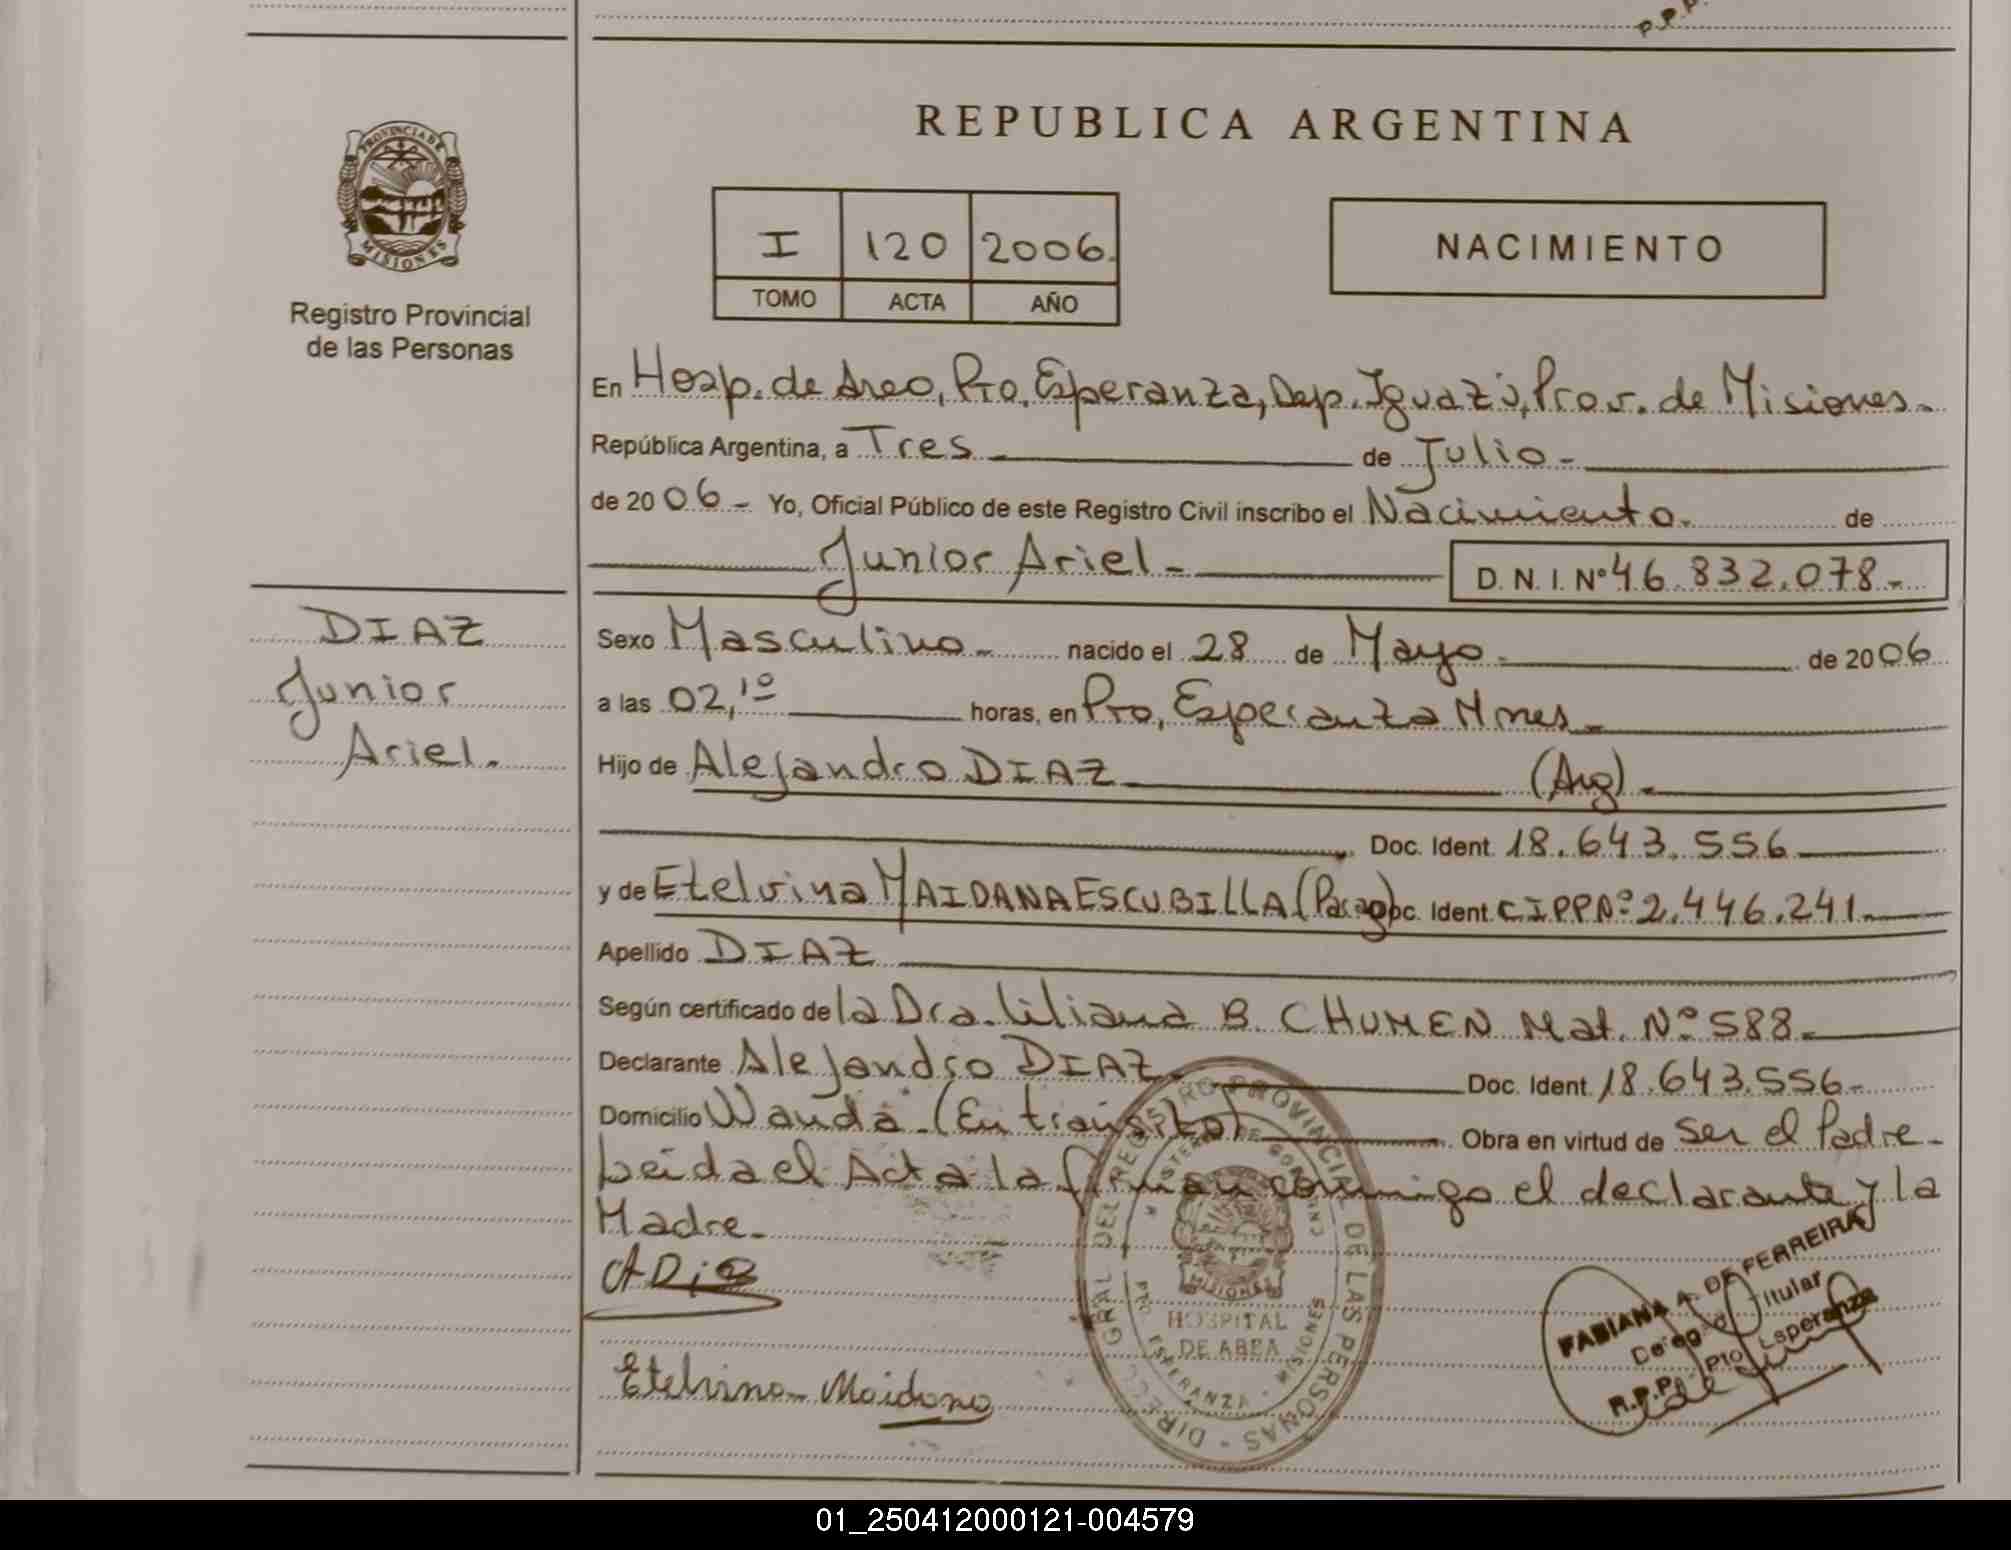 P.P.P.
REPUBLICA ARGENTINA
PROVINCIA DE
MISIONES
I 120 2006.
TOMO ACTA AÑO
NACIMIENTO
Registro Provincial
de las Personas
En Hosp. de Area, Pto, Esperanza, Dep. Iguazú, Prov. de Misiones.-
República Argentina, a Tres de Julio-
de 2006- Yo, Oficial Público de este Registro Civil inscribo el Nacimiento. de
Junior Ariel- D.N.I. Nº 46.832.078-
DIAZ
Junior
Ariel.
Sexo Masculino- nacido el 28 de Mayo- de 2006
a las 02,10 horas, en Pto, Esperanza Mnes-
Hijo de Alejandro DIAZ (Arg).-
Doc. Ident. 18.643.556
y de Etelvina MAIDANA ESCUBILLA (Parag) Doc. Ident. CIPPNº 2.446.241-
Apellido DIAZ
Según certificado de la Dra. Liliana B. CHUMEN Mat. Nº 588-
Declarante Alejandro DIAZ- Doc. Ident. 18.643.556-
Domicilio Wanda (En transito) Obra en virtud de Ser el Padre-
Leida el Acta la firman conmigo el declarante y la
Madre-
ADia
Etelvina Maidana
DIREC. GRAL DEL REGISTRO PROVINCIAL DE LAS PERSONAS
MINISTERIO DE GOBIERNO
MISIONES
HOSPITAL
DE AREA
PTO. ESPERANZA - MISIONES
FABIANA A. DE FERREIRA
Delegada Titular
R.P.P. Pto Esperanza
01_250412000121-004579